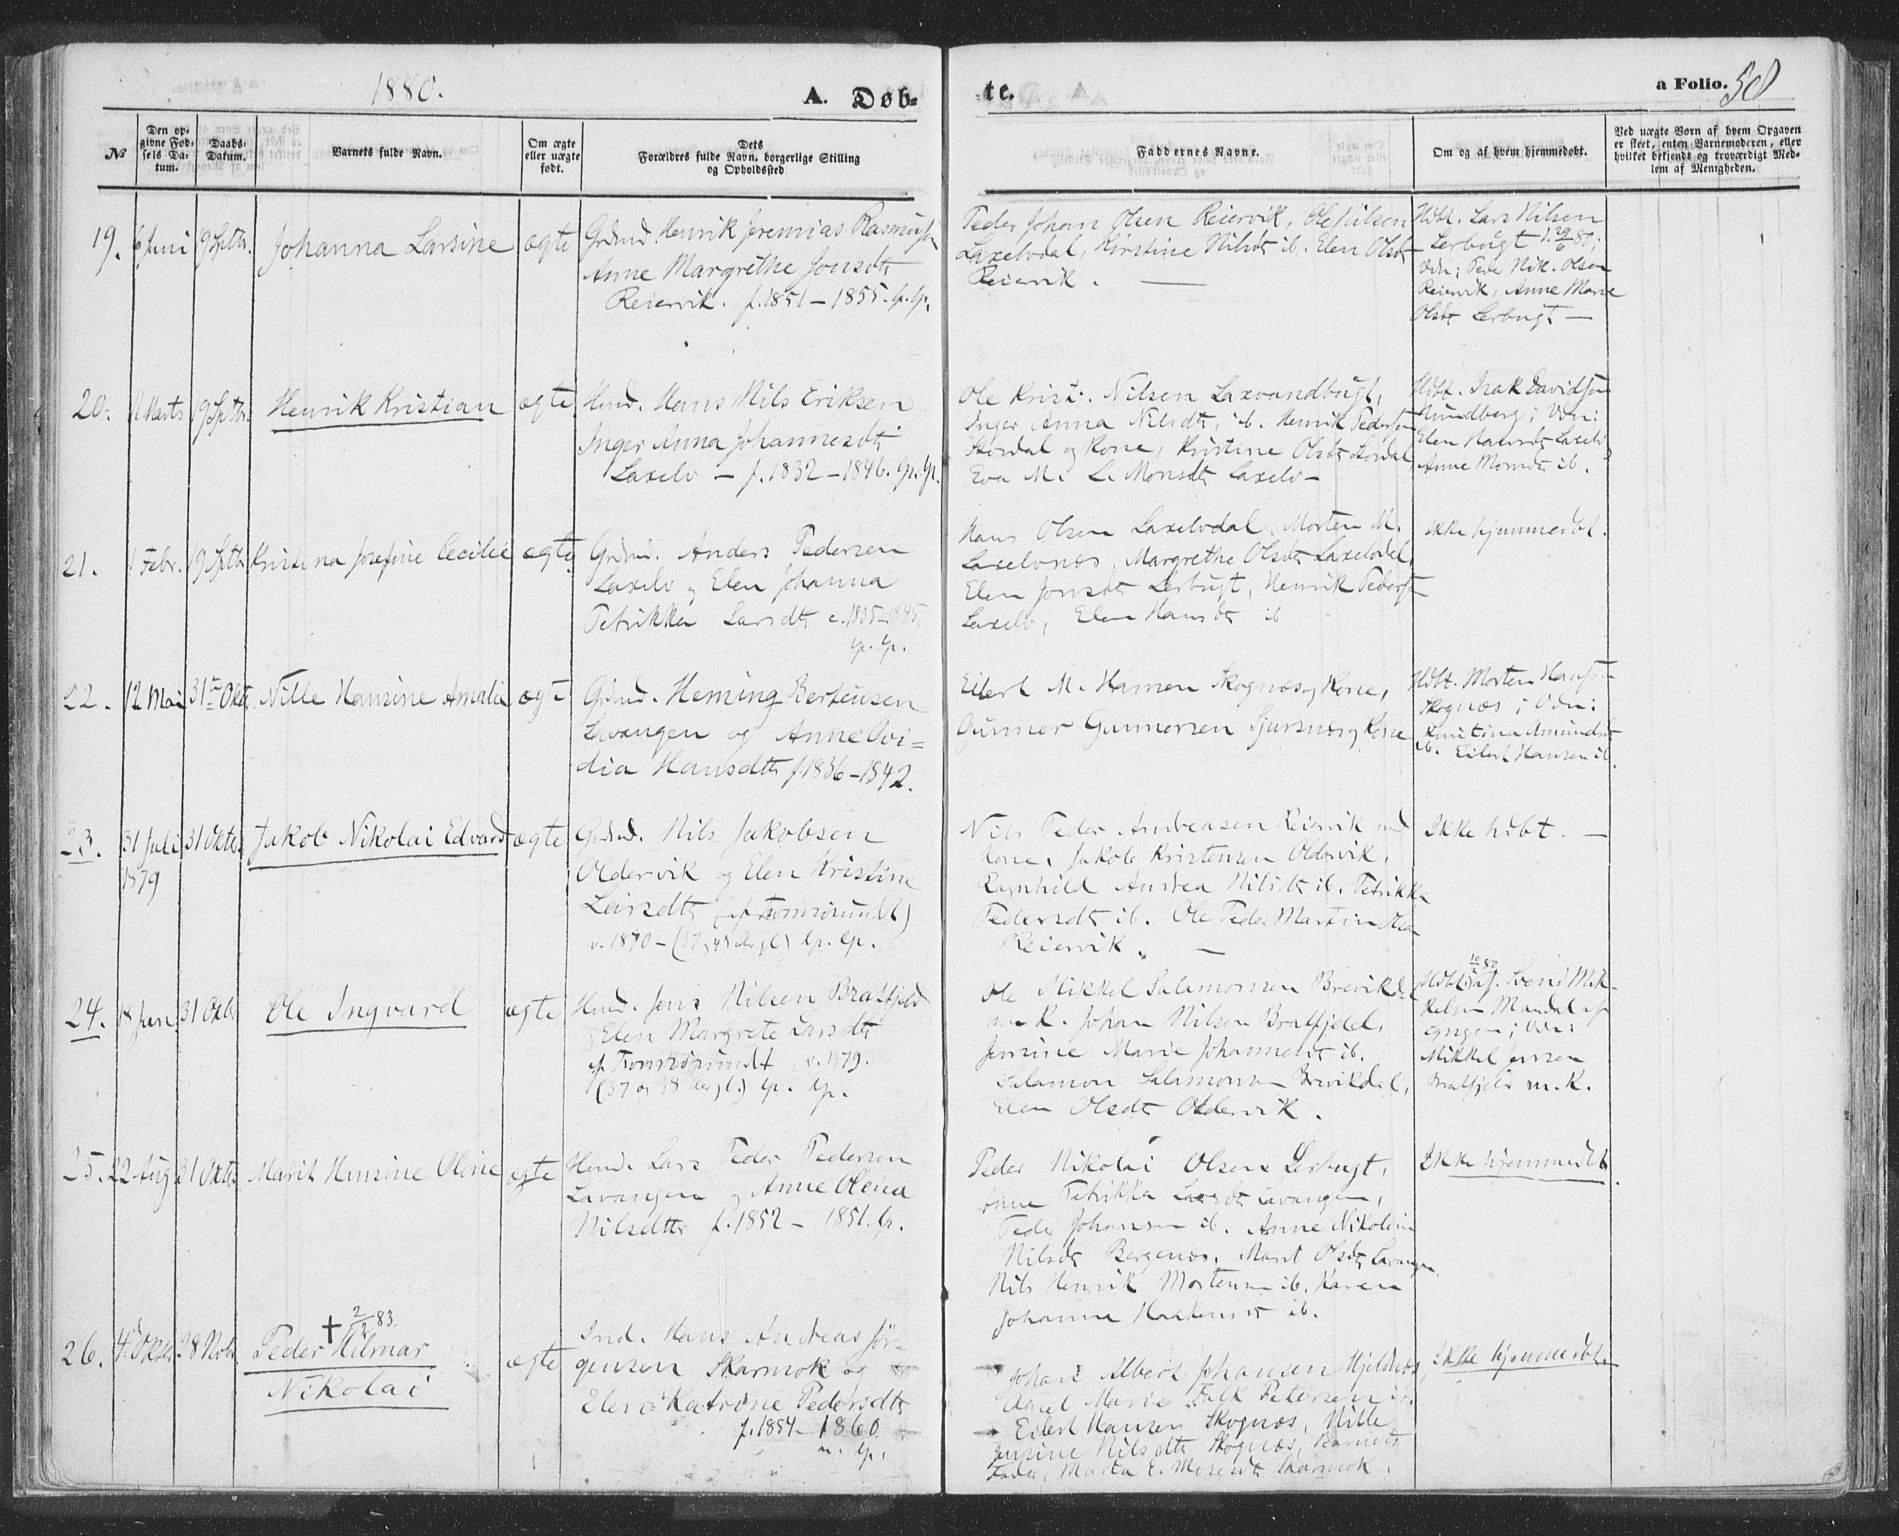 1880.
A. Døb-
te.
a Folio. 50
№
Den op-
givne Fød-
sels Da-
tum.
Daabs-
Datum.
Barnets fulde Navn.
Om ægte
eller uægte
født.
Dets
Forældres fulde Navn, borgerlige Stilling
og Opholdssted
Faddernes Navne.
Om og af hvem hjemmedøbt.
Ved uægte Børn af hvem Opgaven
er skeet, enten Barnemoderen, eller
hvilket bekjendt og troværdigt Med-
lem af Menigheden.
19. 6 Juni 19 Septbr. Johanna Larsine ægte
Grdmd. Henrik Jeremias Rasmuss.
Anne Margrethe Jonsdtr
Reiervik. f. 1851 – 1855. lp. lp.
Peder Johan Olsen Reiervik, Ole Nilsen
Laxelvdal, Kirstine Nilsdtr ib. Elen Olsdtr
Reiervik. —
Hdbt. Lars Nilsen
Lerbugt
Peder Nik. Olsen
Reiervik, Anne Marie
Olsdtr Lerbugt —
20. 11 Marts 19 Septbr. Henrik Kristian ægte
Hmd. Hans Nils Eriksen
Inger Anna Johannesdtr
Laxelv – f. 1832 – 1846. lp. lp.
Ole Krist. Nilsen Laxvandbugt,
Inger Anna Nilsdtr ib. Henrik Pedersen
Stordal og Kone, Kirstine Olsdtr Stordal
Eva M. L. Monsdtr Laxelv –
Hdbt. Isak Davidsen
Nundberg; Vdn:
Elen Hansdtr Laxelv
Anne Monsdtr ib.
21. 1 Febr. 19 Septbr Kristina Josefine Cecilie ægte
Grdmd. Anders Pedersen
Laxelv og Elen Johanna
Petrikka Larsdtr c. 1835–1845.
lp. lp.
Hans Olsen Laxelvdal, Morten M.
Laxelvnæs, Margrethe Olsdtr Laxelvdal,
Elen Jonsdtr Lerbugt, Henrik Peders.
Laxelv, Elen Hansdtr ib
Ikke hjemmedbt.
22. 12 Mai 31te Oktr. Nille Hansine Amalie ægte
Grdmd. Heming Bertheusen
Lavangen og Anne Ovi=
dia Hansdtr f. 1836 – 1842.
Eilert M. Hansen Skognæs og Kone,
Gunner Gunnersen Sjursnæs og Kone
Hdbt. Morten Hansen
Skognæs; Vdn:
Kristina Amundsdtr
ib. Eilert Hansen ib.
23. 31 Juli 31 Oktbr. Jakob Nikolai Edvard ægte
1879
Grdmd. Nils Jakobsen
Oldervik og Elen Kristine
Larsdtr (af Tromsøsundet)
v. 1870 – (37, 41 Aar gl) lp. lp.
Nils Peder Andreasen Reiervik med
Kone, Jakob Kristensen Oldervik,
Ragnhild Andrea Nilsdtr ib. Petrikka
Pedersdtr ib. Ole Peder Martin Olsen
Reiervik. —
Ikke hdbt. —
24. 18 Jan 31 Oktbr Ole Ingvard ægte
Hmd. Jens Nilsen Bratfjeld
Elen Margrete Larsdtr
af Tromsøsundet v. 1879.
(37 og 38 Aar gl.) lp. lp.
Ole Mikkel Salamonsen Breivikdal
m. K. Johan Nilsen Bratfjeld,
Jensine Marie Johannesdtr ib.
Salamon Salamonsen Breivikdal,
Elen Olsdtr Oldervik.
Hdbt af Svend Mik-
kelsen Mandal af
Lyngen; Vdn:
Mikkel Jensen
Bratfjeld m. K.
25. 22 Aug 31 Oktbr Marit Hansine Oline ægte
Hmd. Lars Peder Pedersen
Lavangen og Anne Olena
Nilsdtr f. 1852 – 1851. lp.
Peder Nikolai Olsen Lerbugt,
Anne Petrikka Larsdtr Lavangen,
Peder Johansen ib. Anne Nikolina
Nilsdtr Bergenæs, Marit Olsdtr Lavangen
Nils Henrik Mortensen ib. Karen
Johanne Haakensdtr ib.
Ikke hjemmedbt
26. 4 Oktbr. 28 Novbr † 2/2 83.
Peder Hilmar
Nikolai ægte
Ind. Hans Andreas Jør-
gensen Skarmok og
Elen Katrine Pedersdtr
f. 1854 – 1860
n. lp.
Johan Albert Johansen Hjeldnæs,
Marie Falk Petersen ib.
Eilert Hansen Skognæs, Nille
Jensine Nilsdtr Skognæs, Barnets
Fader, Marta E. Monsdtr Skarmok.
Ikke hjemmedbt.